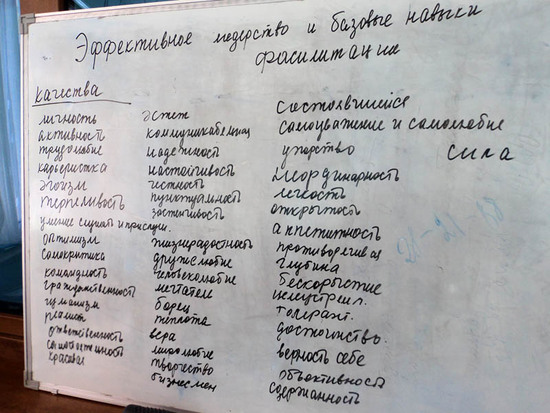 Эффективное лидерство и базовые навыки
фасилитации
качества
личность
активность
трудолюбие
карьеристка
эгоизм
терпеливость
умение слушать и прислуш.
оптимизм
самокритика
командность
гражданственность
гуманизм
реалист
ответственность
самобытность
красивый
эстет
коммуникабельность
надежность
настойчивость
честность
пунктуальность
застенчивость
жизнерадостность
дружелюбие
человеколюбие
мечтатель
борец
теплота
вера
миролюбие
творчество
бизнесмен
состоявшийся
самоуважение и самолюбие
упорство
сила
неординарность
легкость
открытость
аппетитность
противоречивая
глубина
бескорыстие
целеустрем.
толерант.
достоинство.
верность себе
объективность
сдержанность